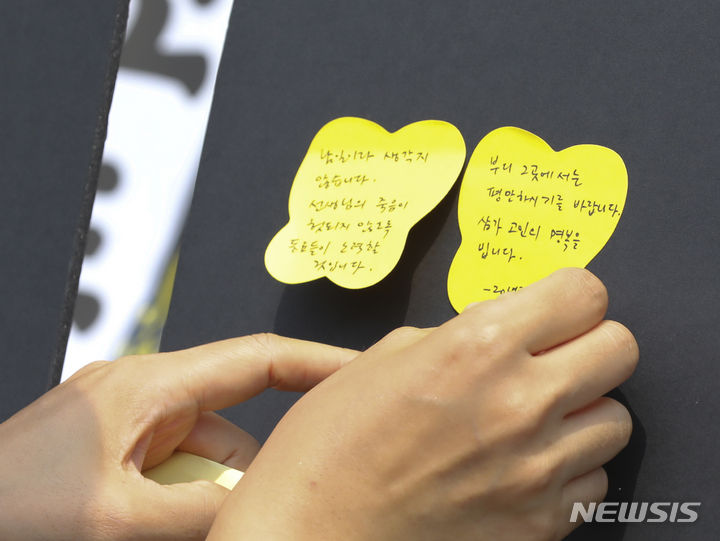 남일이라 생각지
않습니다.
선생님의 죽음이
헛되지 않도록
동료들이 노력할
것입니다.
부디 그곳에서는
평안하시기를 바랍니다.
삼가 고인의 명복을
빕니다.
NEWSIS